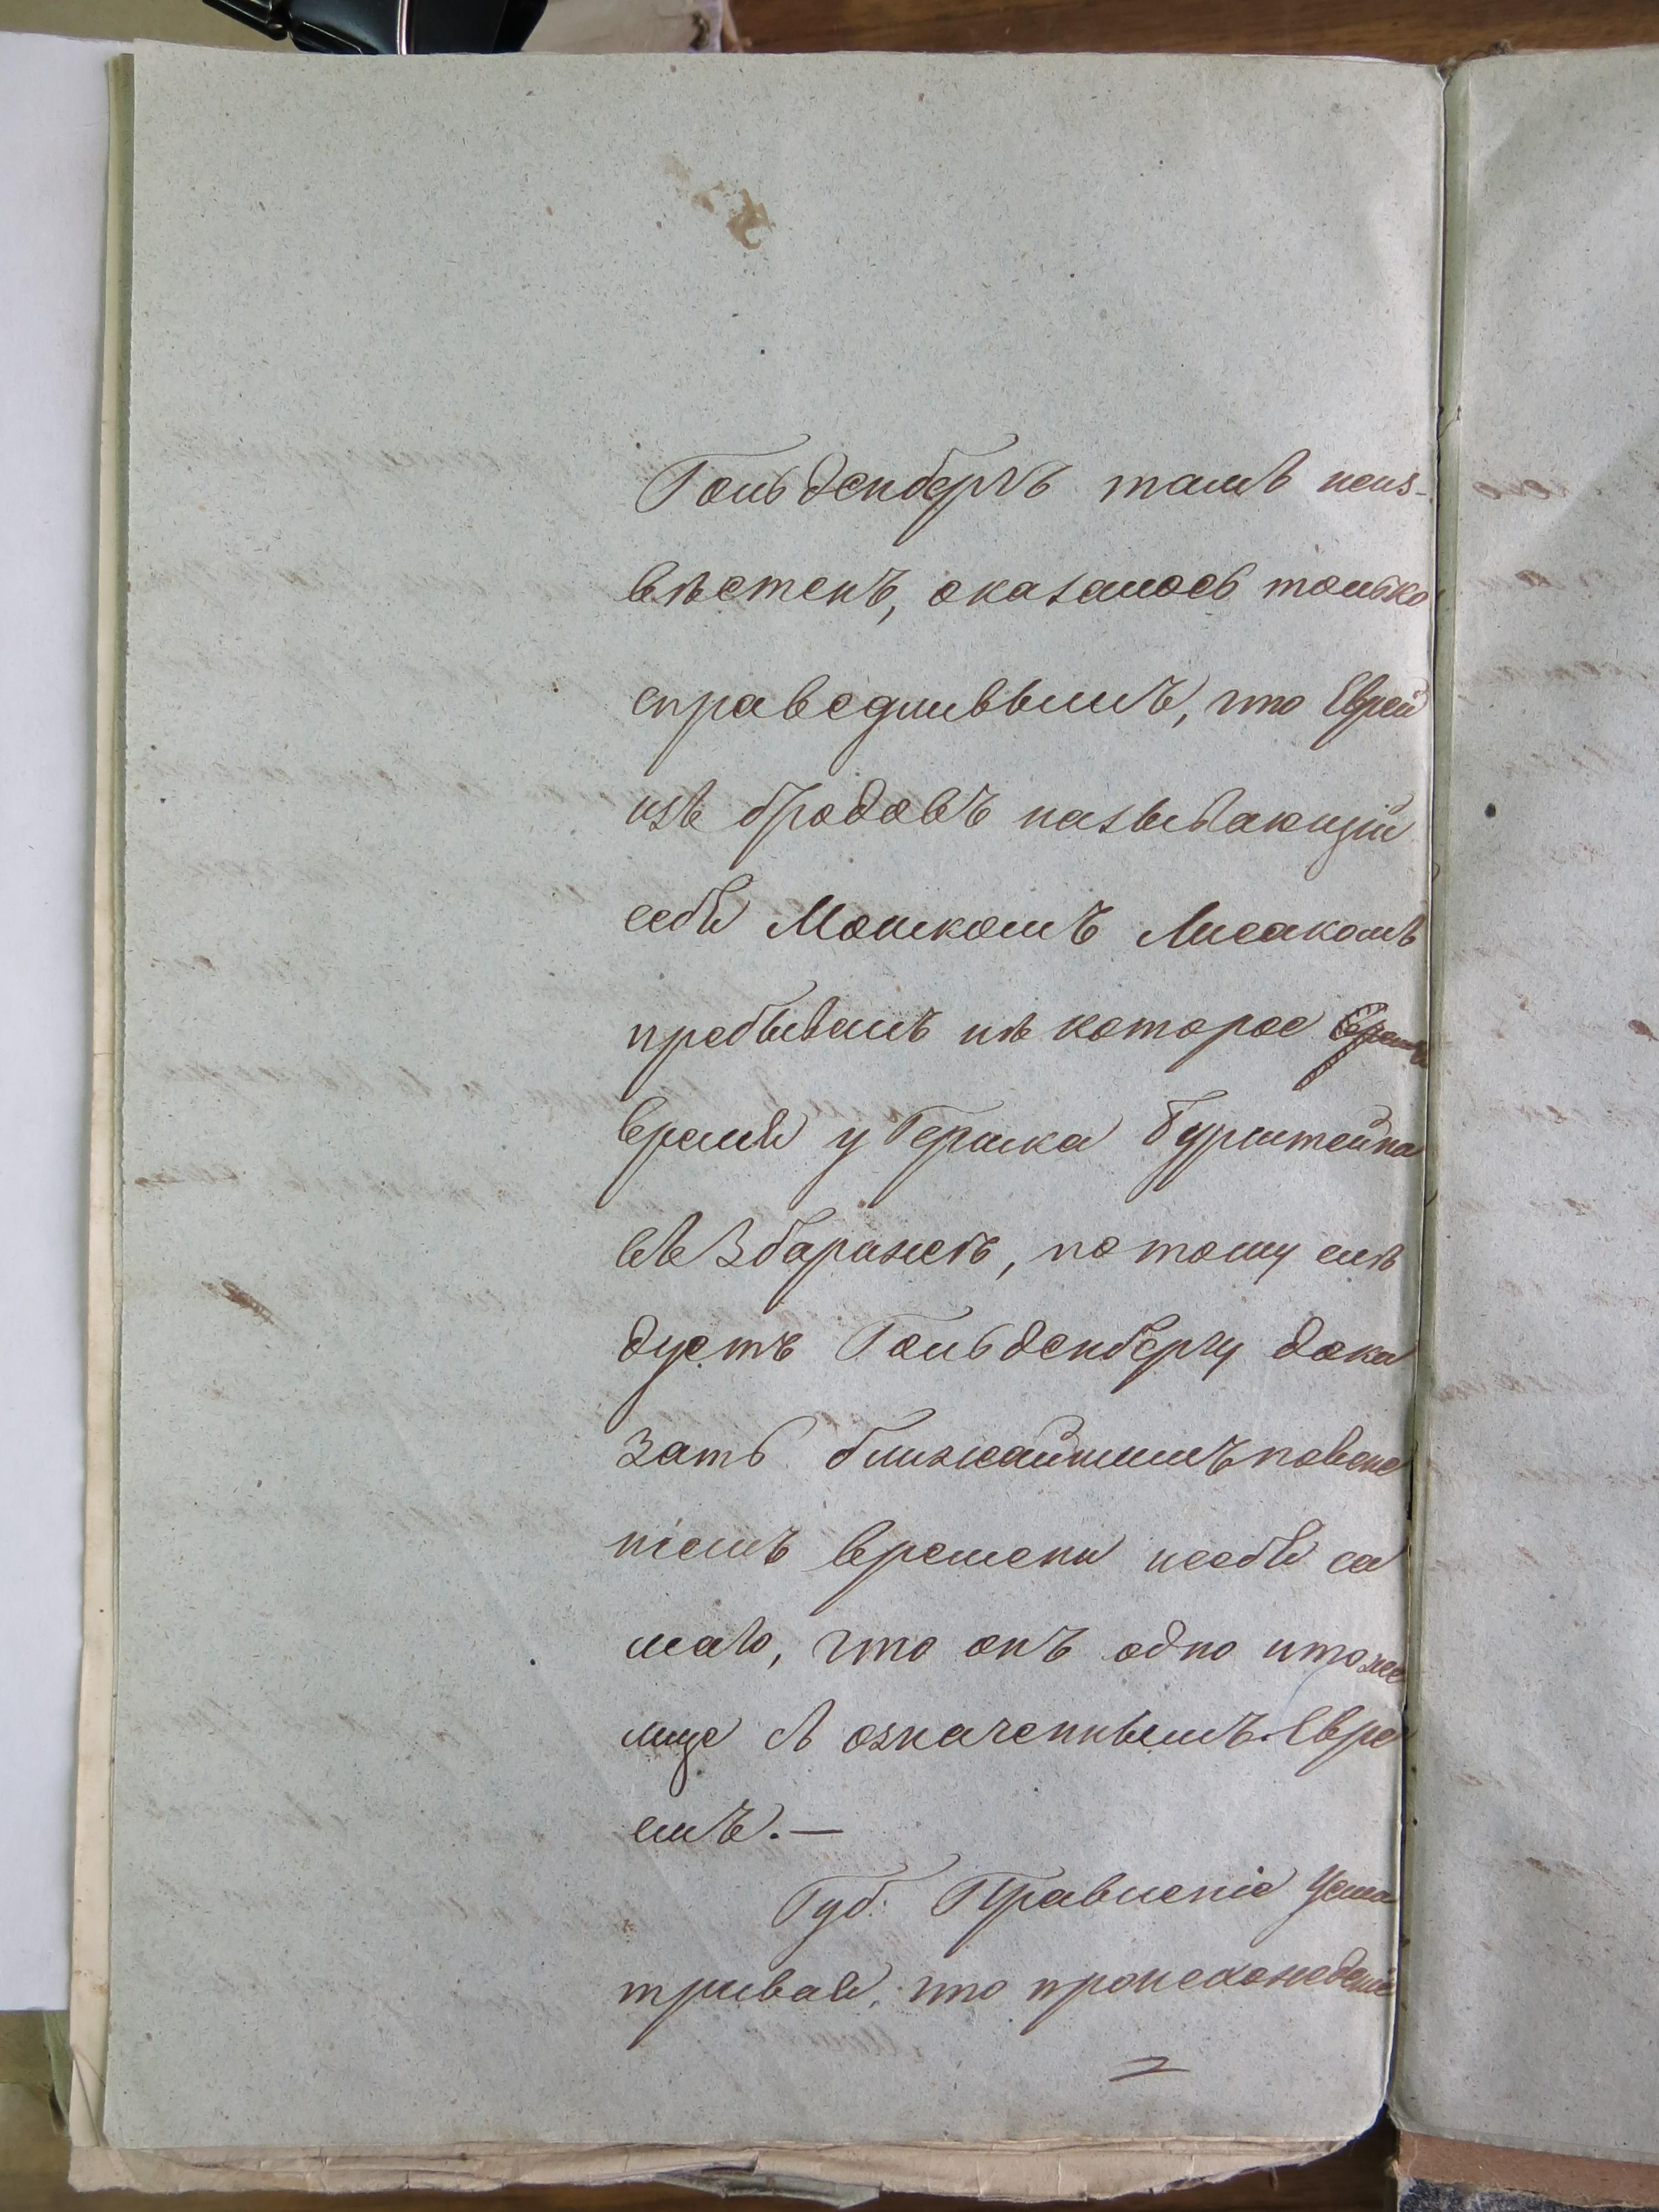 Гольденбергъ тамъ неиз-
вѣстенъ, оказалось только
справедливымъ, что Еврей
изъ бродовъ называющій
себя Мошкомъ Лисакомъ
пребывалъ нѣкоторое
время у Гершка Бурштейна
въ Збаражѣ, потому слѣ
дуетъ Гольденбергу дока
зать ближайшимъ поясне
ніемъ времени и себя са
маго, что онъ одно итоже
лице съ означеннымъ Евре
емъ.—
Губ: Правленіе Усма
тривая, что происхожденіе
=